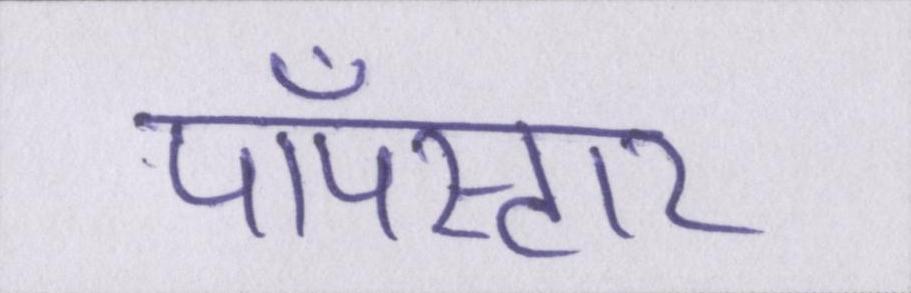 पाँपस्टार